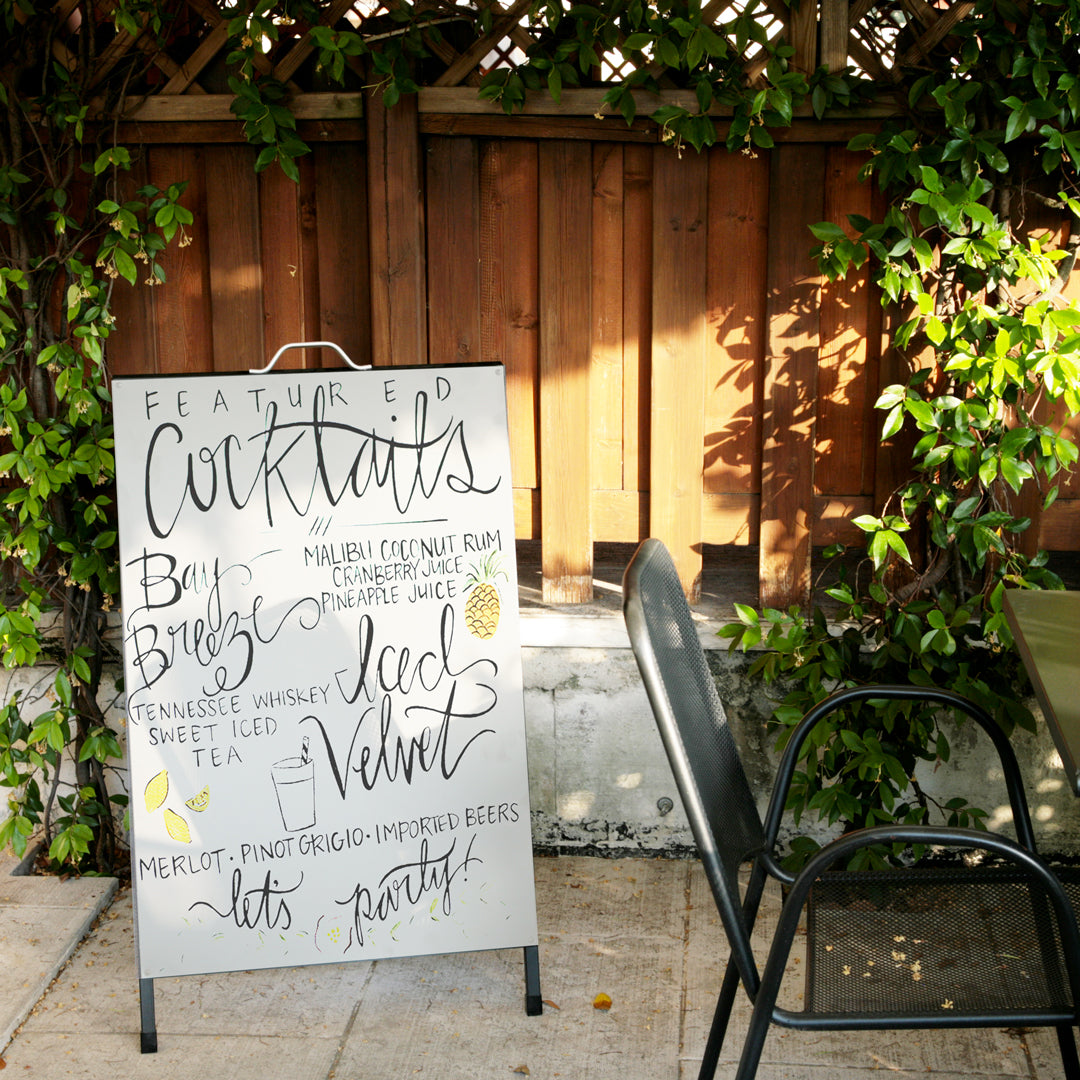 FEATURED
Cocktails
Bay
Breeze
MALIBU COCONUT RUM
CRANBERRY JUICE
PINEAPPLE JUICE
Iced
Velvet
TENNESSEE WHISKEY
SWEET ICED
TEA
MERLOT · PINOT GRIGIO · IMPORTED BEERS
let's party!